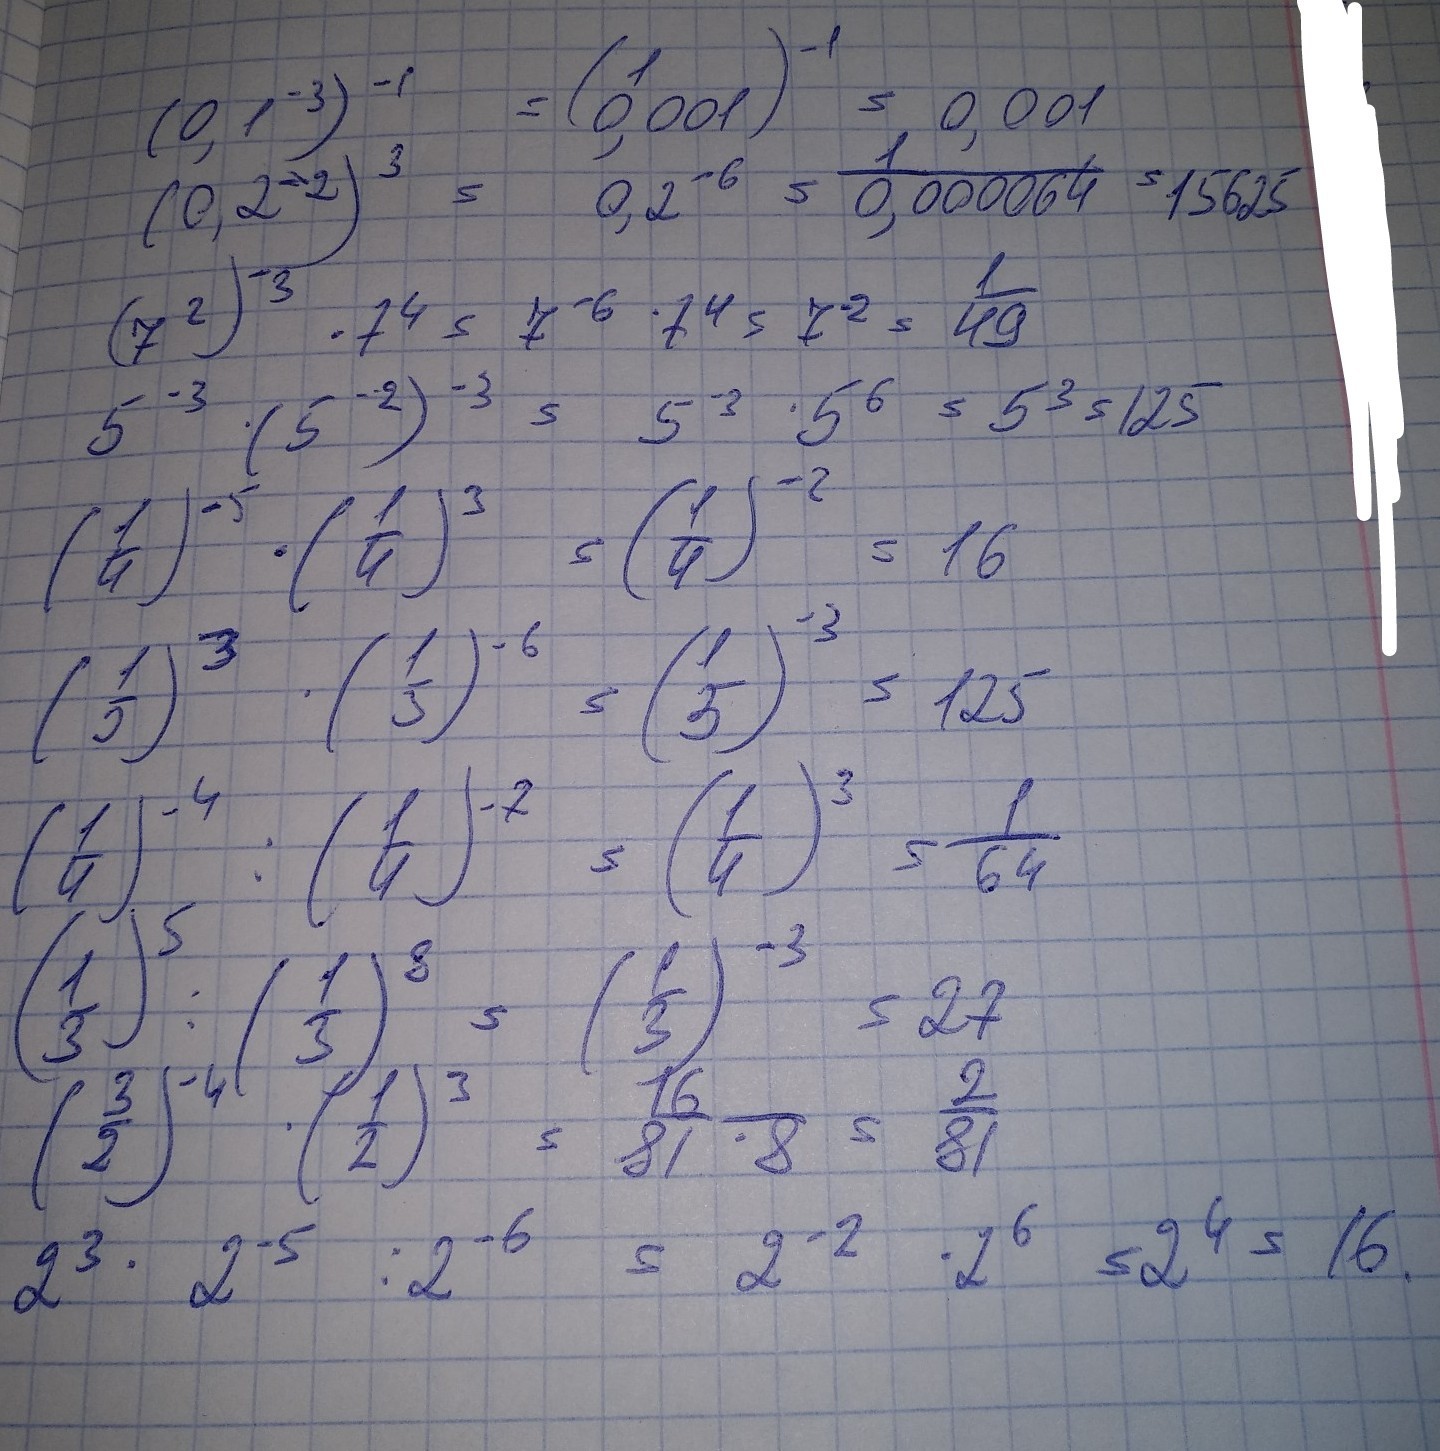 (0,1^-3)^-1 = (1/0,001)^-1 = 0,001
(0,2^-2)^3 = 0,2^-6 = 1/0,000064 = 15625
(7^2)^-3 · 7^4 = 7^-6 · 7^4 = 7^-2 = 1/49
5^-3 · (5^-2)^-3 = 5^-3 · 5^6 = 5^3 = 125
(1/4)^-5 · (1/4)^3 = (1/4)^-2 = 16
(1/5)^3 · (1/5)^-6 = (1/5)^-3 = 125
(1/4)^-4 : (1/4)^-7 = (1/4)^3 = 1/64
(1/3)^5 : (1/3)^8 = (1/3)^-3 = 27
(3/2)^-4 · (1/2)^3 = 16/81·8 = 2/81
2^3 · 2^-5 : 2^-6 = 2^-2 · 2^6 = 2^4 = 16.